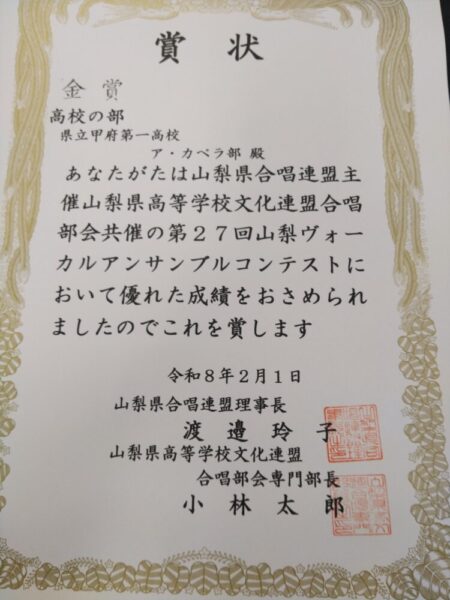 賞状
金賞
高校の部
県立甲府第一高校
ア・カペラ部 殿
あなたがたは山梨県合唱連盟主
催山梨県高等学校文化連盟合唱
部会共催の第27回山梨ヴォー
カルアンサンブルコンテストに
おいて優れた成績をおさめられ
ましたのでこれを賞します
令和8年2月1日
山梨県合唱連盟理事長
渡邉玲子
山梨県高等学校文化連盟
合唱部会専門部長
小林太郎